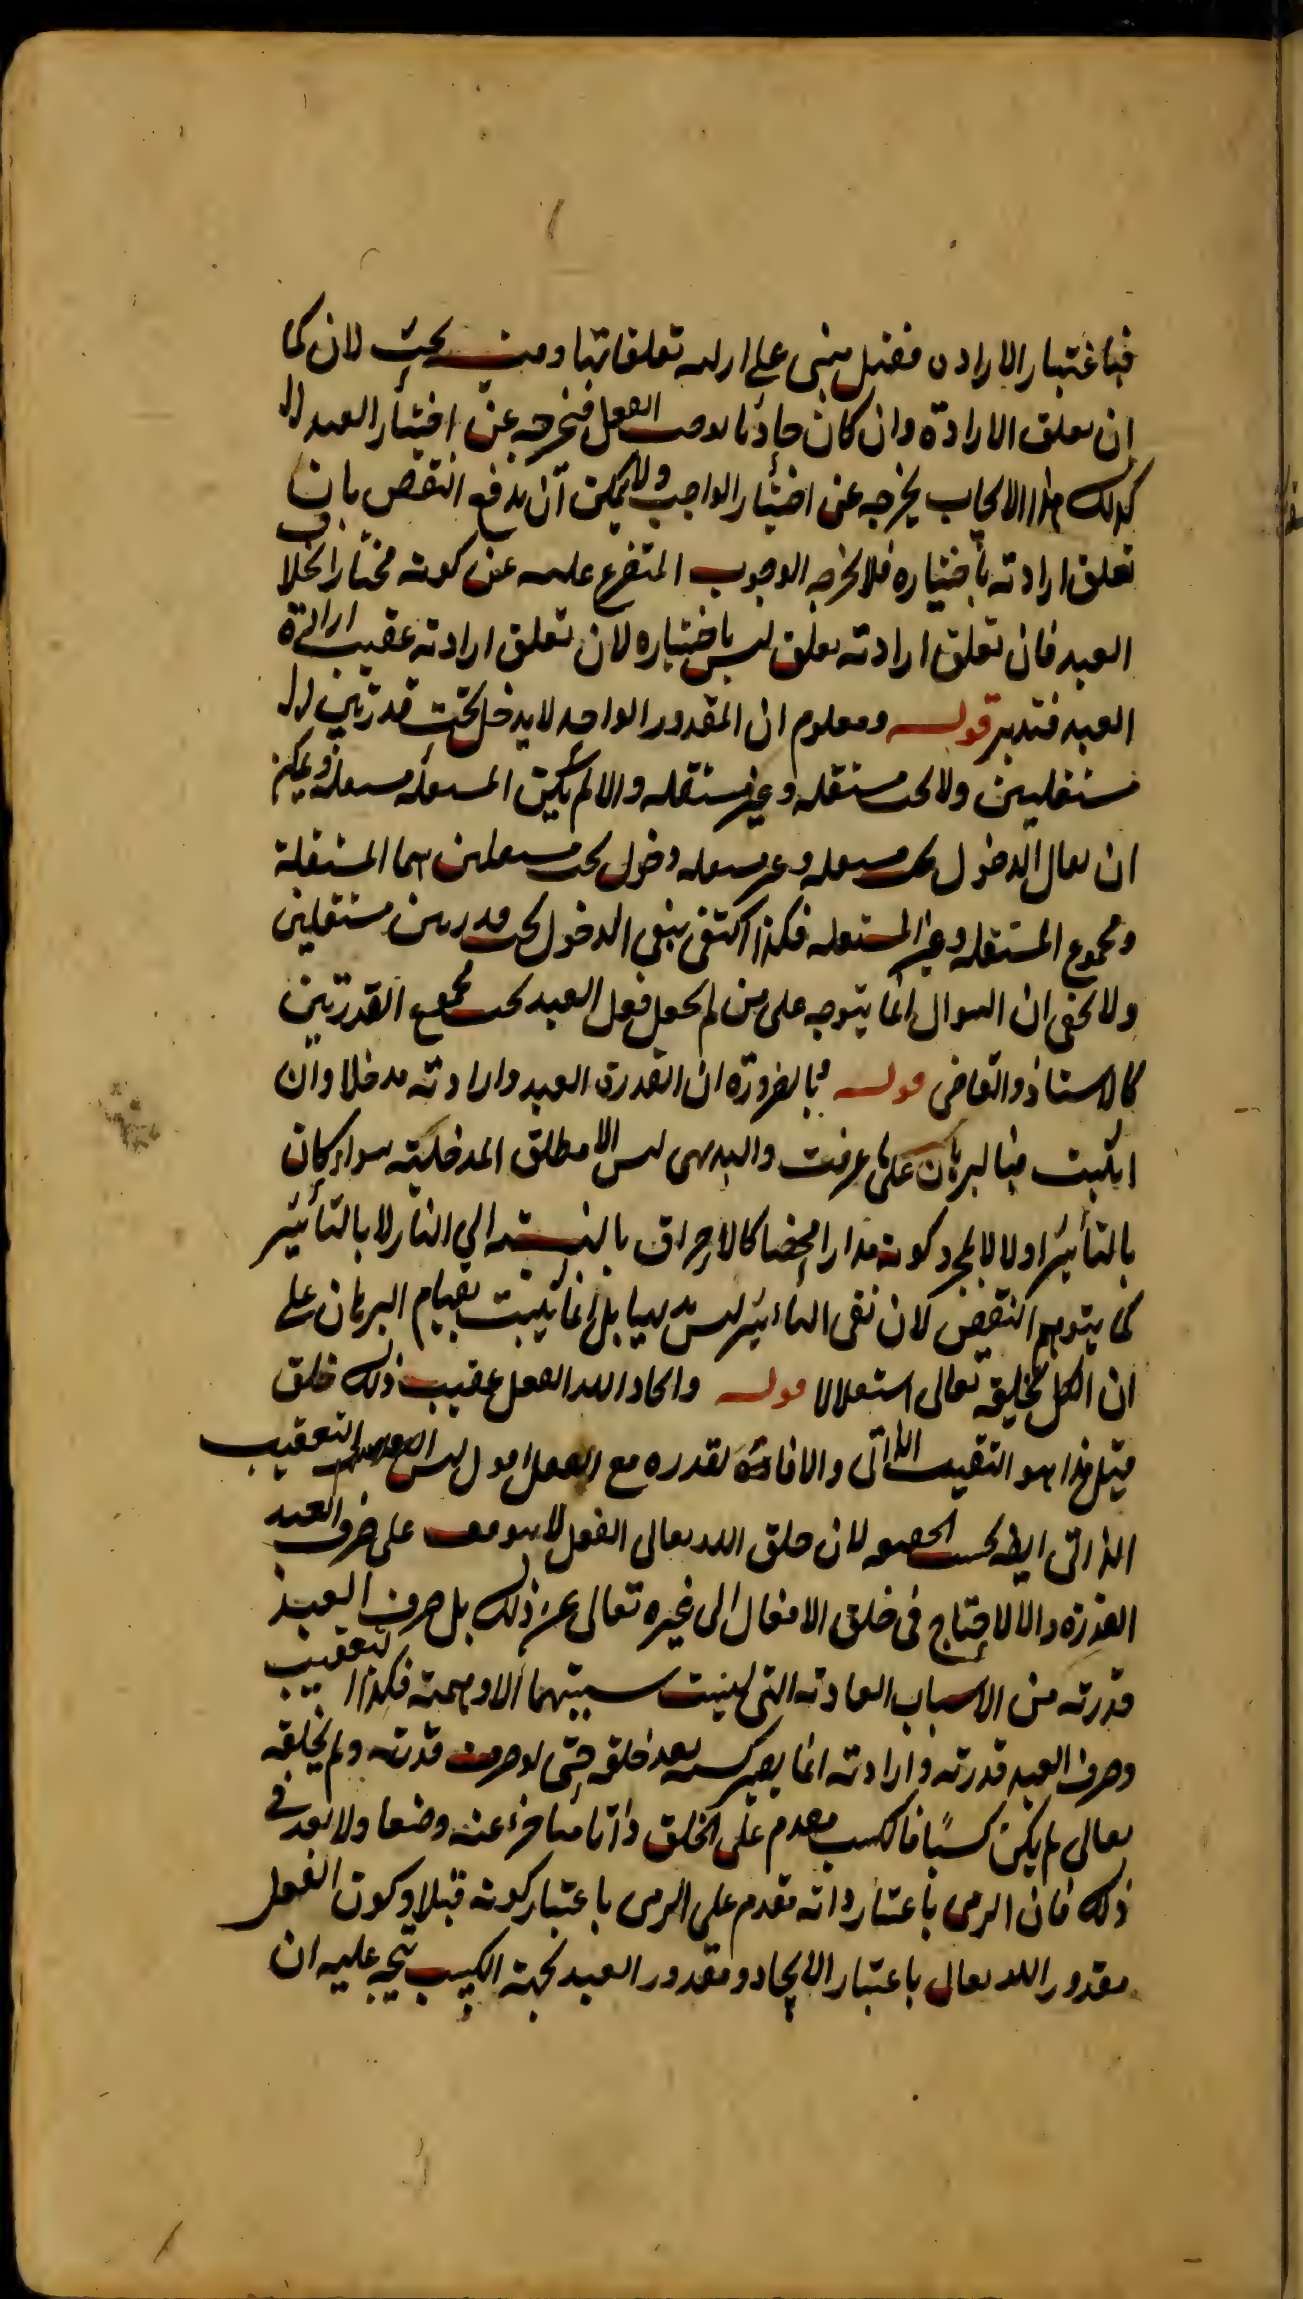 فباعتبار الارادة فقيل مبنى على ازلية تعلقاتها وفيه بحث لان كما
ان تعلق الارادة وان كان حادثا يوجب الفعل فيخرجه عن اختيار العبد
كذلك هذا الايجاب يخرجه عن اختيار الواجب ولا يمكن ان يدفع النقض بان
تعلق ارادته باختياره فلا يخرجه الوجوب المتفرع عليه عن كونه مختارا بخلاف
العبد فان تعلق ارادته تعلق ليس باختياره لان تعلق ارادته عقيب ارادة
العبد فتدبر قوله ومعلوم ان المقدور الواحد لا يدخل تحت قدرتين
مستقلتين ولا تحت مستقلة وغير مستقلة والا لم تكن المستقلة مستقلة ويمكن
ان يقال الدخول تحت مستقلة وغير مستقلة دخول تحت مستقلتين هما المستقلة
ومجموع المستقلة وغير المستقلة فلذا اكتفى بنفى الدخول تحت قدرتين مستقلتين
ولا يخفى ان السوال انما يتوجه على من لم يجعل فعل العبد تحت مجموع القدرتين
كالاستاذ والقاضى قوله وبالضرورة ان لقدرة العبد وارادته مدخلا وان
اثبت فبالبرهان على ما عرفت والبديهى ليس الا مطلق المدخلية سواء كان
بالتأثير اولا لا لمجرد كونه مدارا محضا كالاحراق بالنسبة الى النار لا بالتأثير
كما يتوهم النقض لان نفى التأثير ليس بديهيا بل انما يثبت بقيام البرهان على
ان الكل بخليقه تعالى استقلالا قوله وايجاد الله الفعل عقيب ذلك خلق
قيل هذا هو التعقيب الذاتى والا فالقدرة مع الفعل اقول ليس التعقيب
الذاتى ايضا بحسب الحقيقة لان خلق الله تعالى الفعل لا يتوقف على صرف العبد
القدرة والا لاحتاج فى خلق الافعال الى غيره تعالى عن ذلك بل صرف العبد
قدرته من الاسباب العادية التى ليست سببيتها الا وهمية فكذا التعقيب
وصرف العبد قدرته وارادته انما يصير كسبا بعد خلقه حتى لو صرف قدرته ولم يخلقه
تعالى لم يكن كسبا فالكسب مقدم على الخلق ذاتا متأخر عنه وصفا ولا بعد فى
ذلك فان الرمى باعتبار ذاته مقدم على الرمى باعتبار كونه قتلا وكون الفعل
مقدور الله تعالى باعتبار الايجاد ومقدور العبد لجهة الكسب يتجه عليه ان